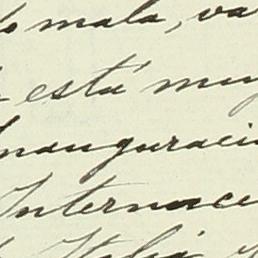 mala, va
está muy
Inauguraci
Internac
Italia